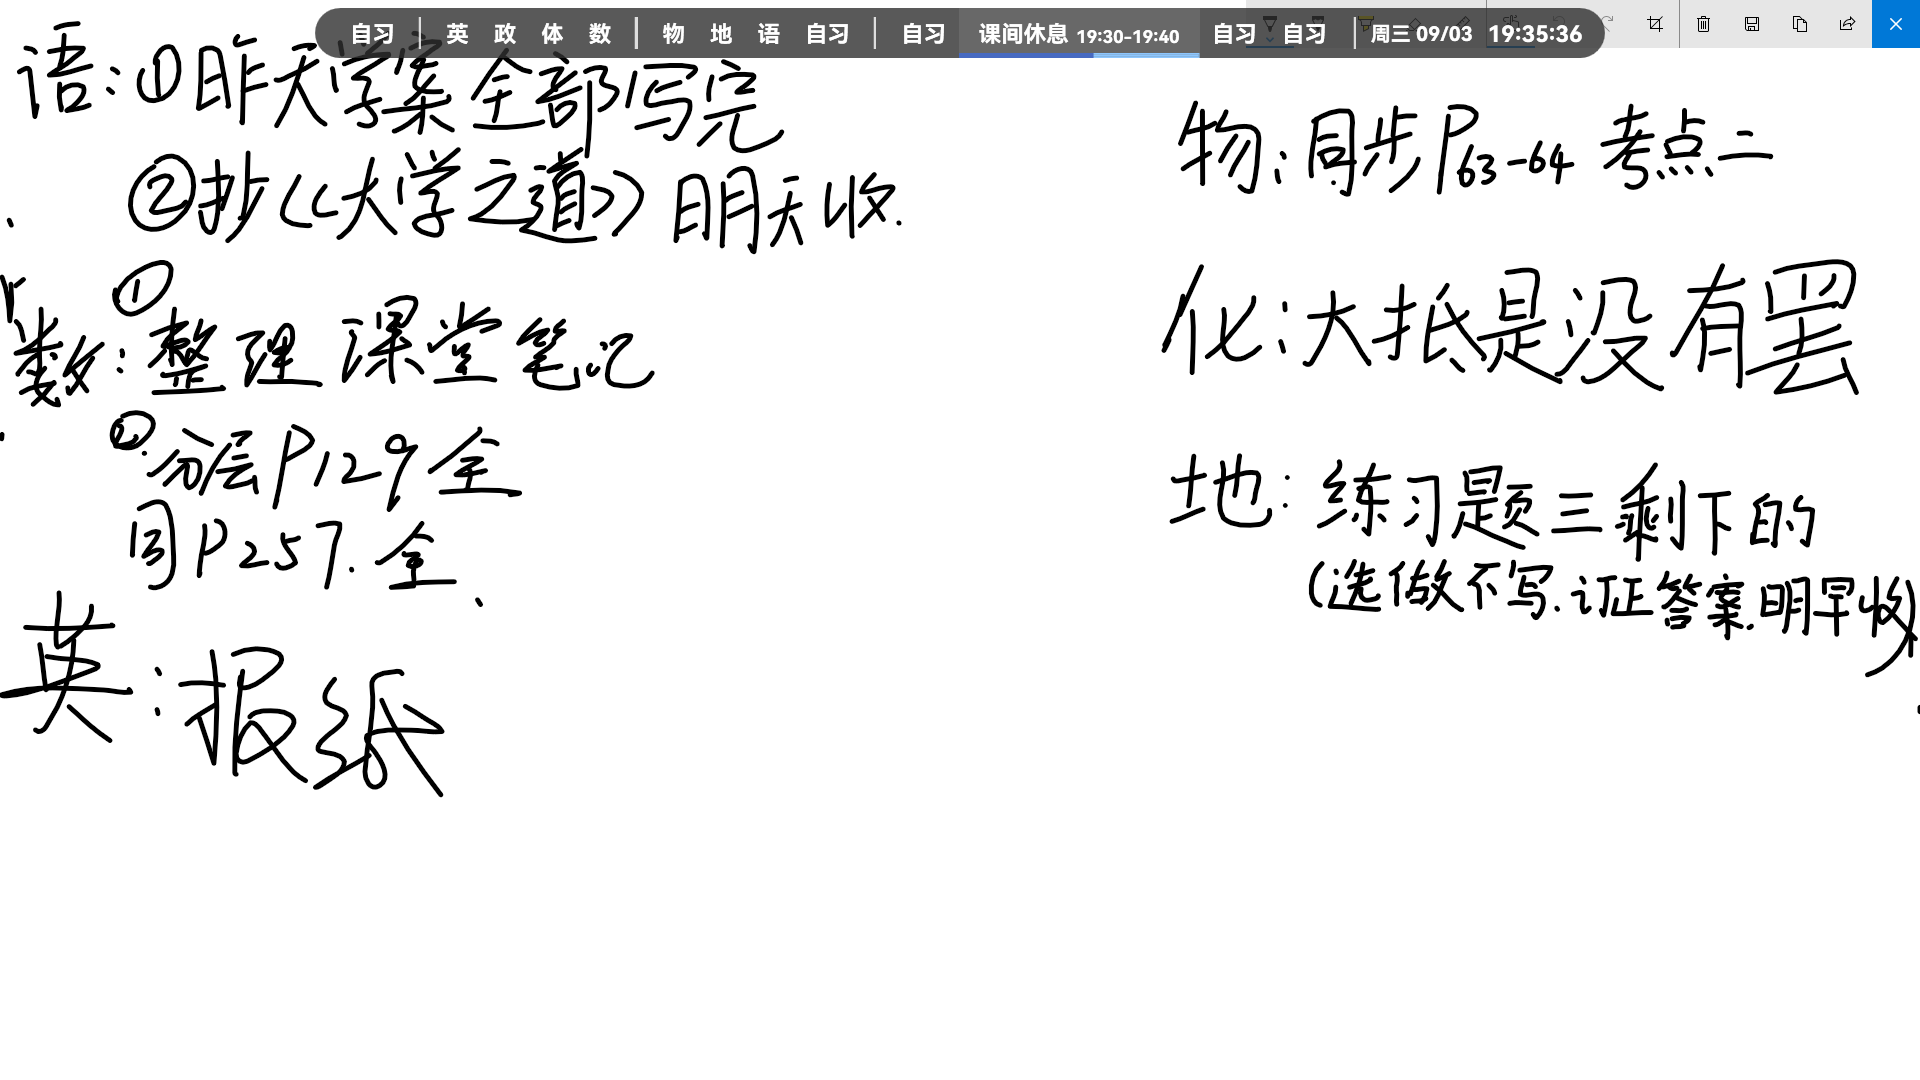 自习 | 英 政 体 数 | 物 地 语 自习 | 自习 课间休息 19:30-19:40 自习 自习 | 周三 09/03 19:35:36
语：①昨天学案全部写完
②抄《大学之道》明天收.
数：①整理课堂笔记
②分层P129全
同P257.全、
英：报纸
物：同步P63-64 考点二
化：大抵是没有罢
地：练习题三剩下的
(选做不写.订正答案.明早收)